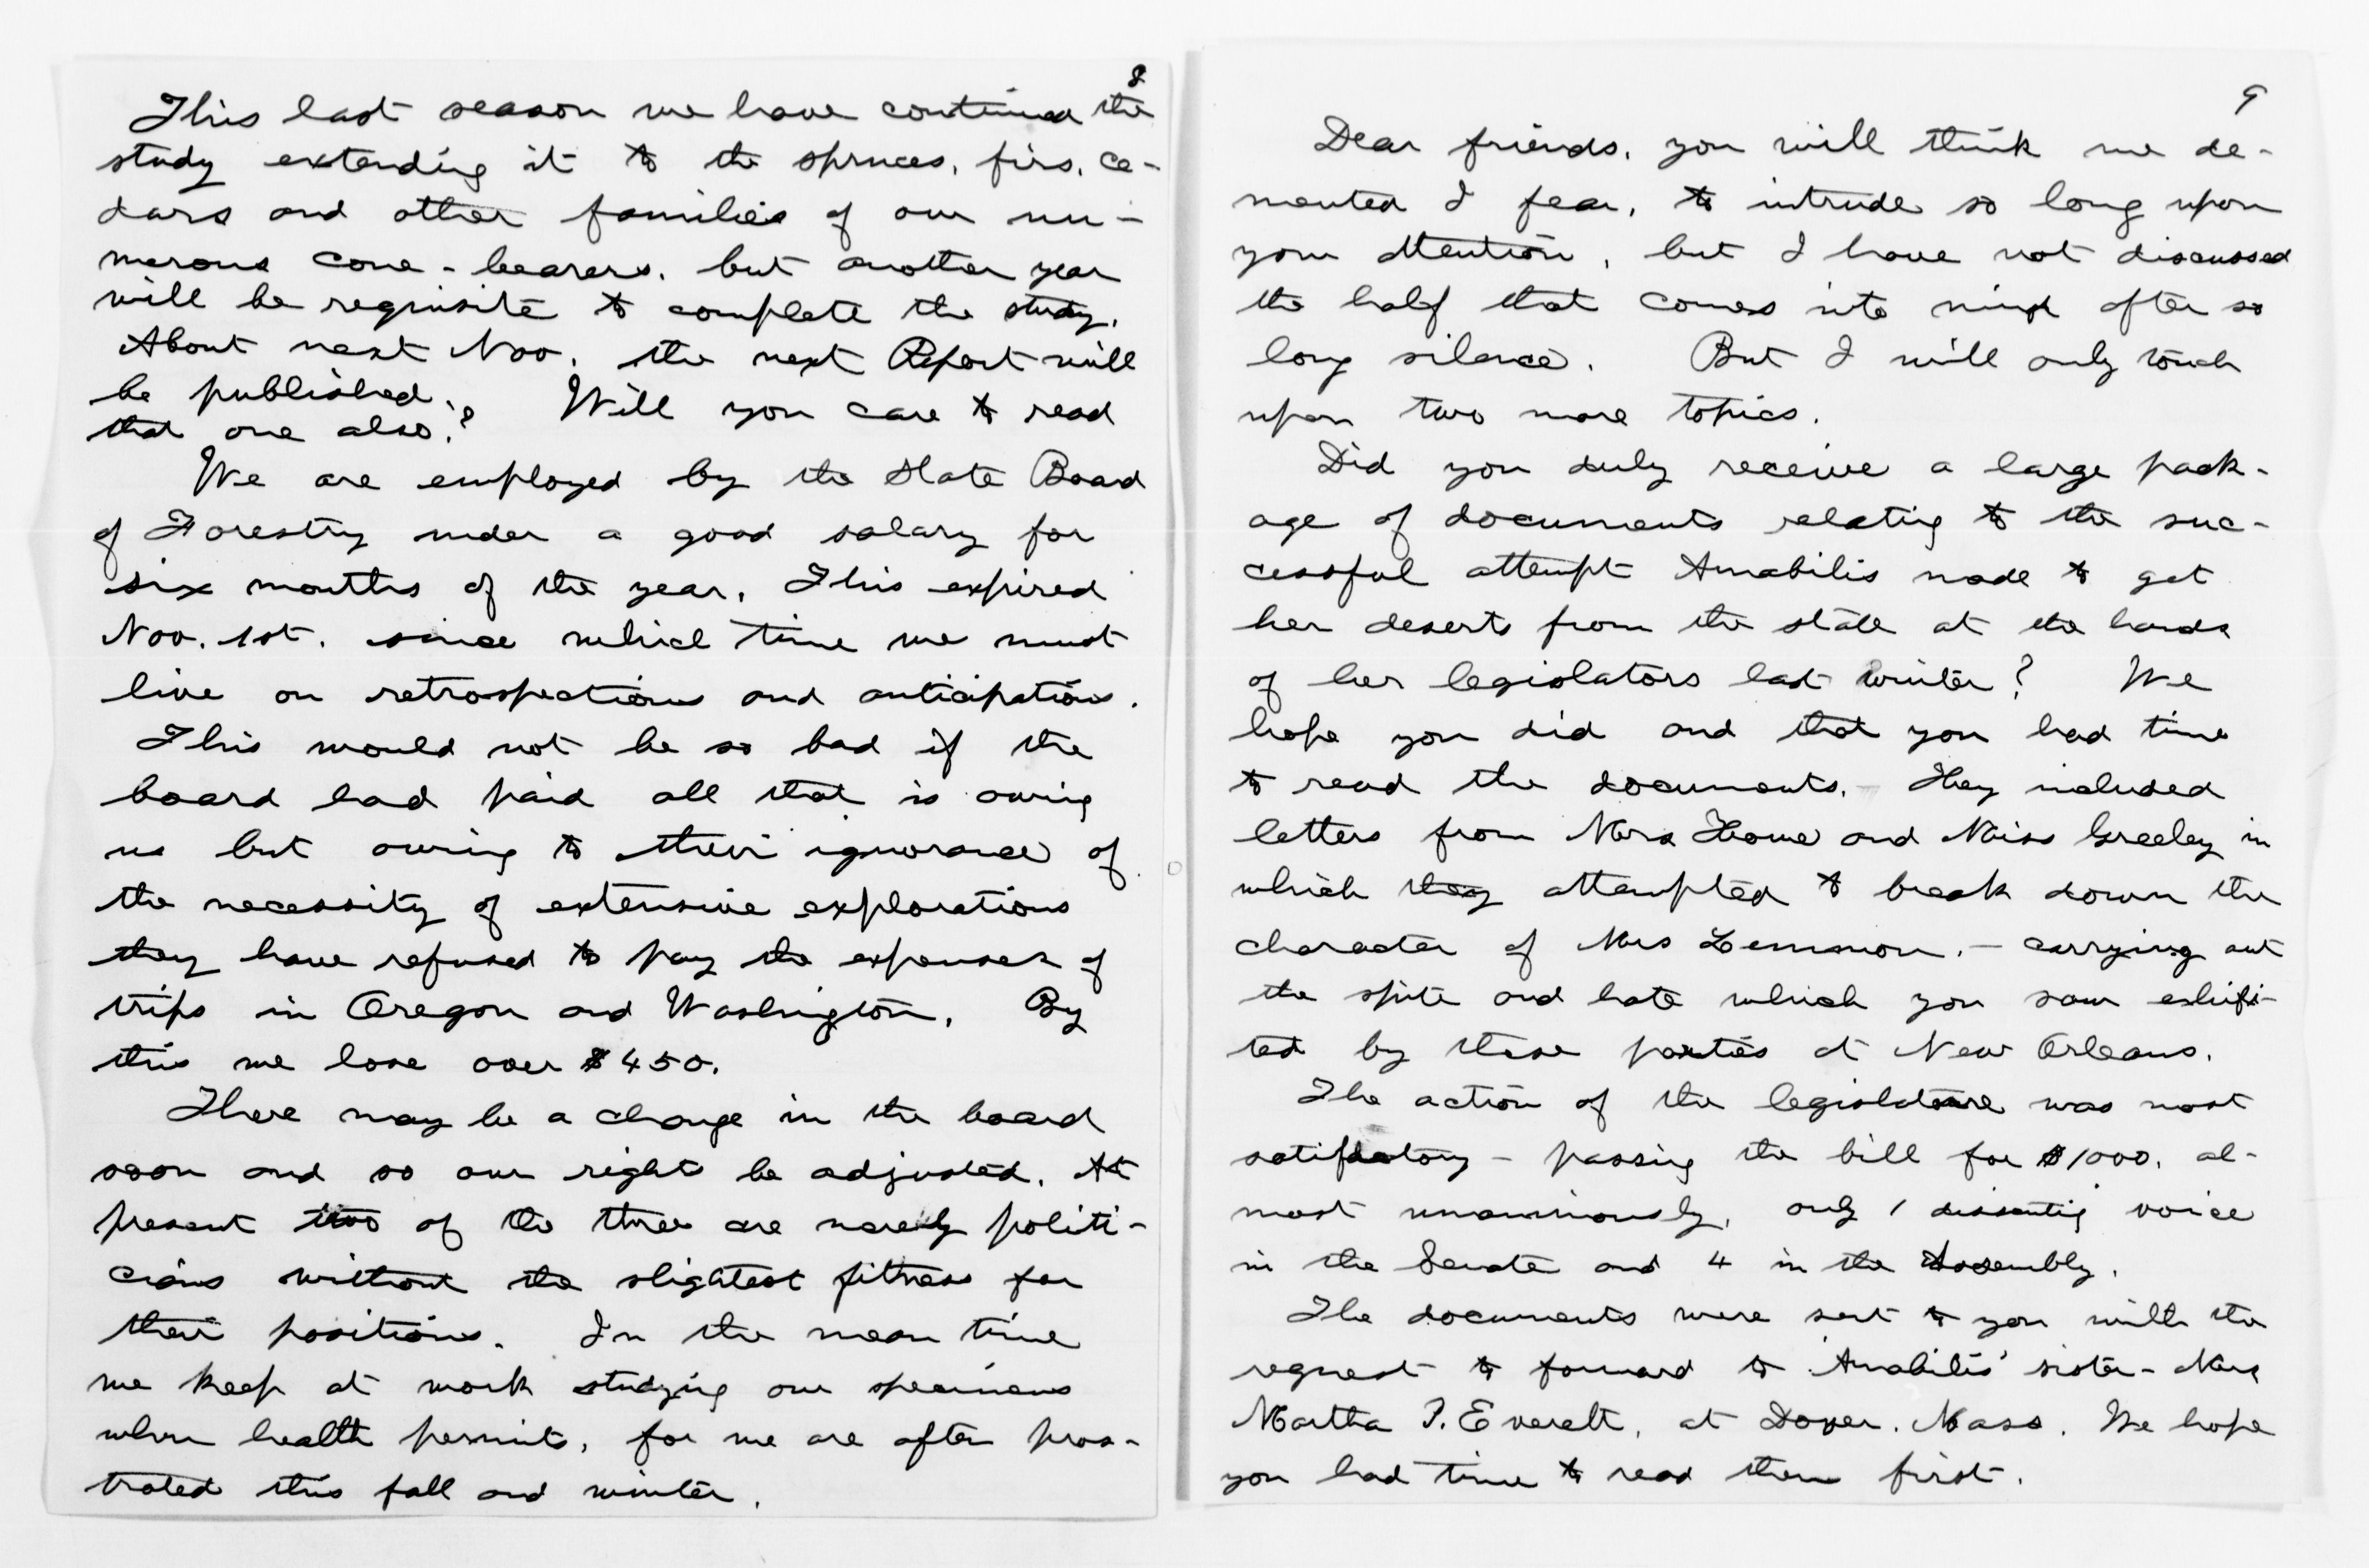 8
This last season we have continued the
study extending it to the spruces, firs, ce-
dars and other families of our nu-
merous cone-bearers, but another year
will be requisite to complete the study.
About next Nov. the next Report will
be published. Will you care to read
that one also?
We are employed by the State Board
of Forestry under a good salary for
six months of the year. This expired
Nov. 1st. since which time we must
live on retrospections and anticipations.
This would not be so bad if the
board had paid all that is owing
us but owing to their ignorance of
the necessity of extensive explorations
they have refused to pay the expenses of
trips in Oregon and Washington. By
this we lose over $450.
There may be a change in the board
soon and so our rights be adjusted. At
present two of the three are merely politi-
cians without the slightest fitness for
their positions. In the mean time
we keep at work studying our specimens
when health permits, for we are often pros-
trated this fall and winter.
9
Dear friends, you will think me de-
mented I fear, to intrude so long upon
your attention, but I have not discussed
the half that comes into mind after so
long silence. But I will only touch
upon two more topics.
Did you duly receive a large pack-
age of documents relating to the suc-
cessful attempt Amabilis made to get
her deserts from the state at the hands
of her legislators last winter? We
hope you did and that you had time
to read the documents. - They included
letters from Mrs Howe and Miss Greeley in
which they attempted to break down the
character of Mrs Lemmon. - carrying out
the spite and hate which you saw exhibi-
ted by these parties at New Orleans.
The action of the legislature was most
satisfactory - passing the bill for $1000. al-
most unanimously, only 1 dissenting voice
in the Senate and 4 in the Assembly.
The documents were sent to you with the
request to forward to Amabilis' sister - Mrs
Martha P. Everett, at Dover. Mass. We hope
you had time to read them first.